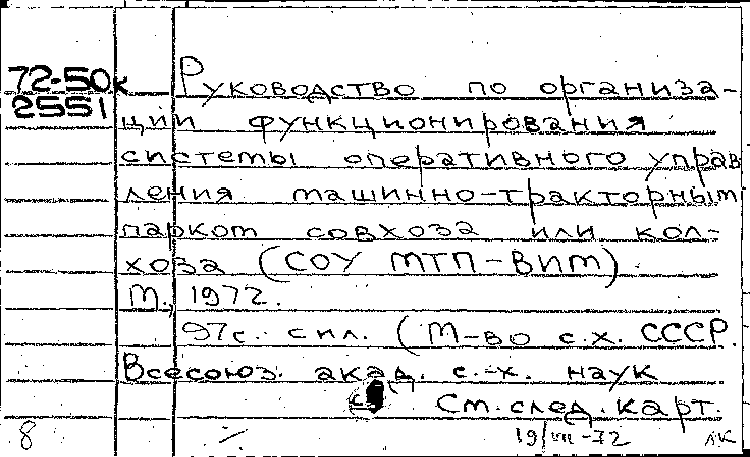 72-50к
2551
Руководство по организа-
ции функционирования
системы оперативного управ
ления машинно-тракторным
парком совхоза или кол-
хоза (СОУ МТП-ВИМ).
М., 1972.
97с. с ил. (М-во с.х. СССР.
Всесоюз. акад. с.-х. наук
См. след. карт.
8 19/VII-72 ЛК